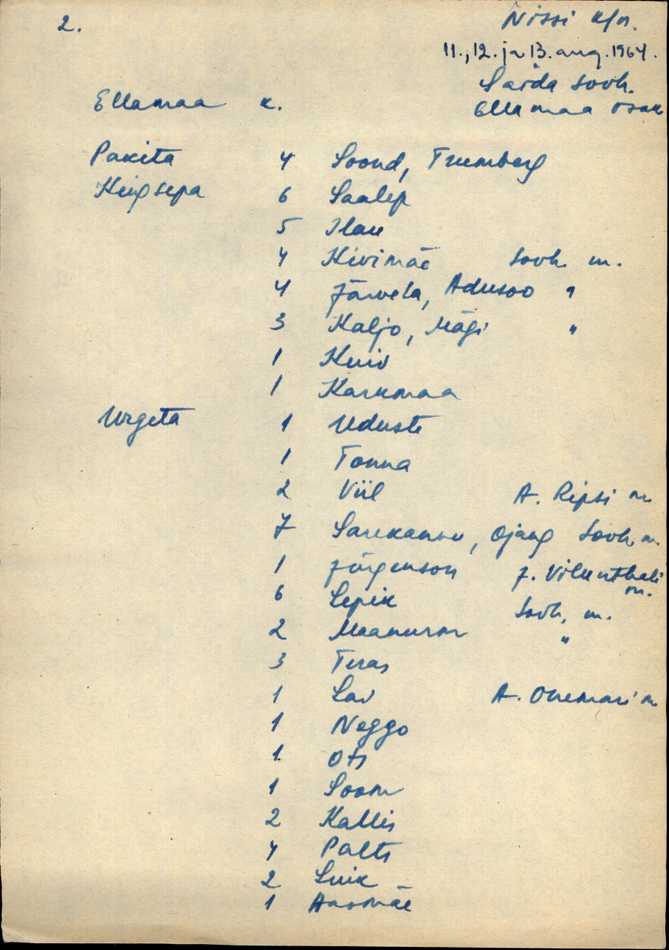 2.
Nissi k/n.
11., 12. ja 13. aug. 1964.
Saida sovh.
Ellamaa k. Ellamaa osak
Pakita 4 Soond, Trumberg
Kingsepa 6 Saalep
5 Ilau
4 Kivimäe Sovh. m.
4 Järvela, Adusoo "
3 Kaljo, Mägi "
1 Kuiv
1 Karumaa
Urgeta 1 Uduste
1 Tonna
2 Viil A. Ripsi m
7 Sarekannu, Ojang Sovh. m.
1 Jürgenson J. m.
6 Lepik Sovh. m.
2 "
3 Teras
1 A. m
1 Neggo
1. Ots
1 Soom
2 Kallis
4 Palts
2 Luik
1 Aasmäe